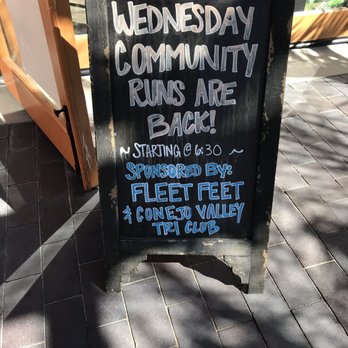 WEDNESDAY
COMMUNITY
RUNS ARE
BACK!
~ STARTING @ 6:30 ~
SPONSORED BY:
FLEET FEET
& CONEJO VALLEY
TRI CLUB